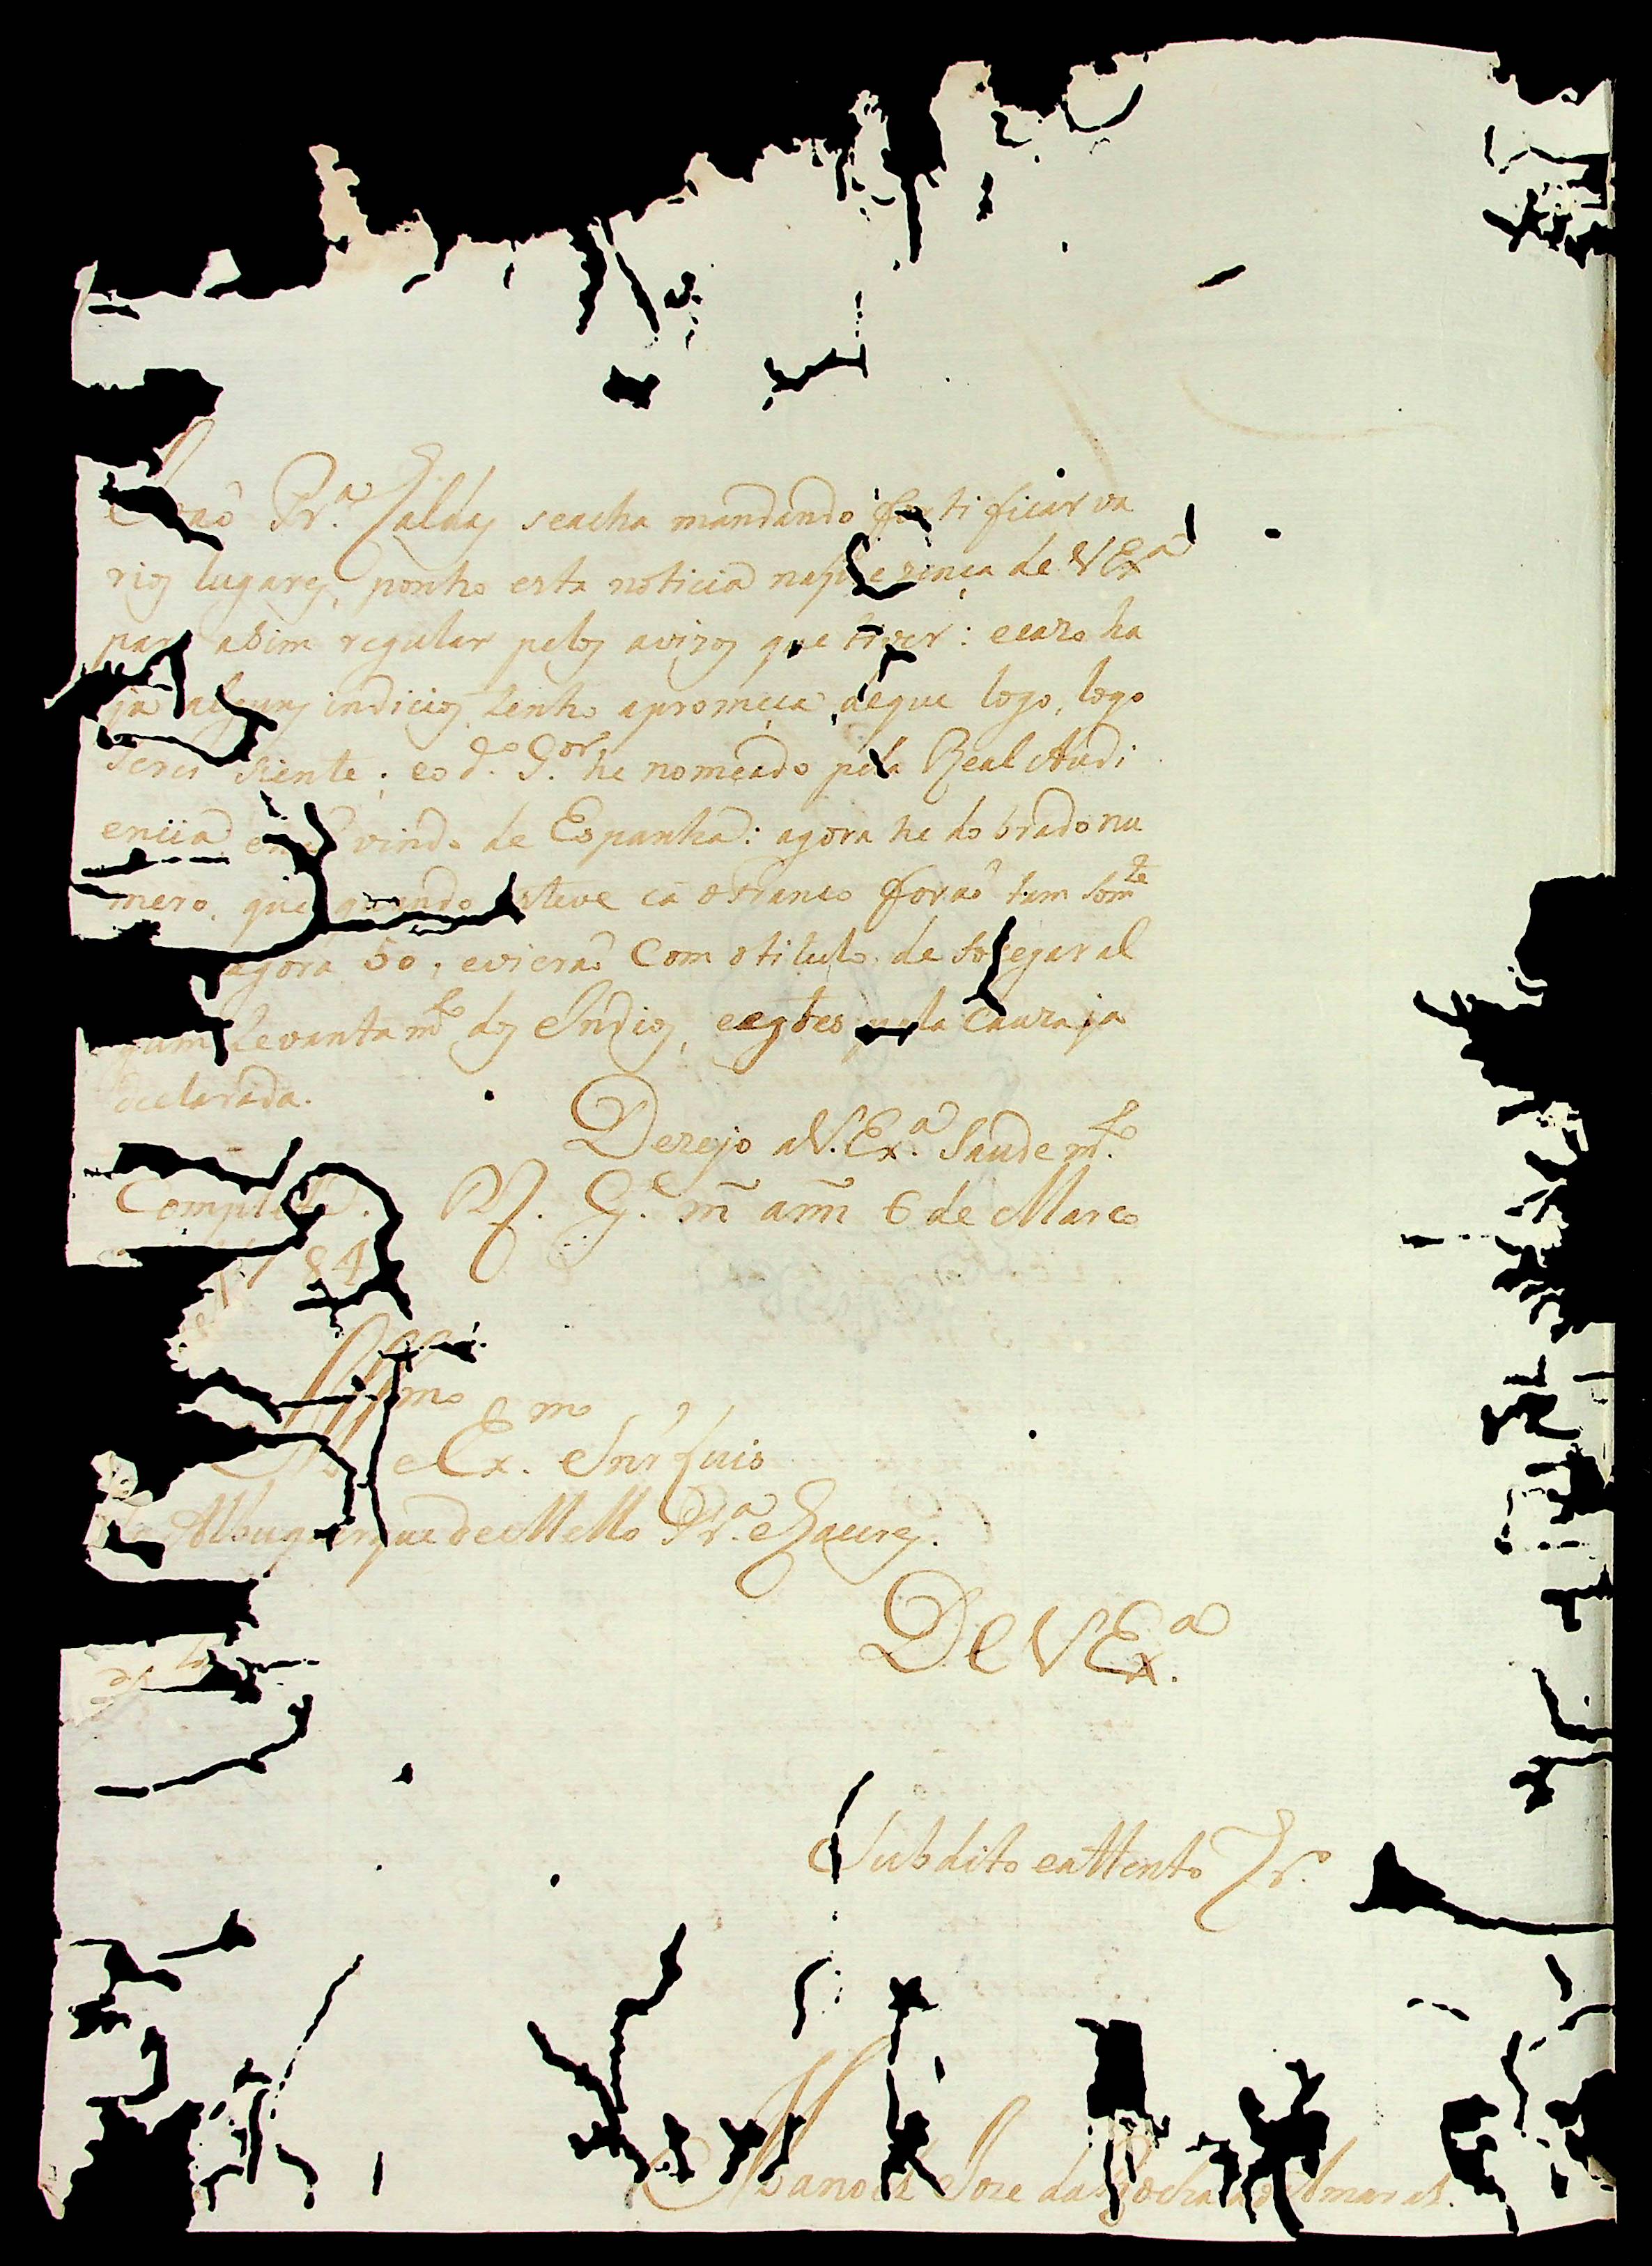 Pr.ª Caldas seacha mandando fortificar va
rios lugares, ponho esta noticia napre zença de VExª
para asim regular pelos avizos que tiver: ecazo ha
ja alguns indicios tenho apromeça deque logo, logo
serei siente; eo d.º G.or he nomeado pela Real Audi
encia vindo de Espanha: agora he dobrado nu
mero, que quando esteve cá o Franco foraõ tam som.te
agora 50, evieraõ Com otitulo de sosegar al
gum Levantam.to dos Indios, eestes pela Cauza ja
declarada.
Dezejo aV.Ex.ª Saude m.to
Completa. G.e m̃ ann̄ 6 de Março
1784
Ill.mo e Ex.mo Snr Luis
de Albuquerque deMello Pr.ª eCaceres.
DeVEx.ª
Subdito eattento
Manoel Joze da Rocha do Amaral.